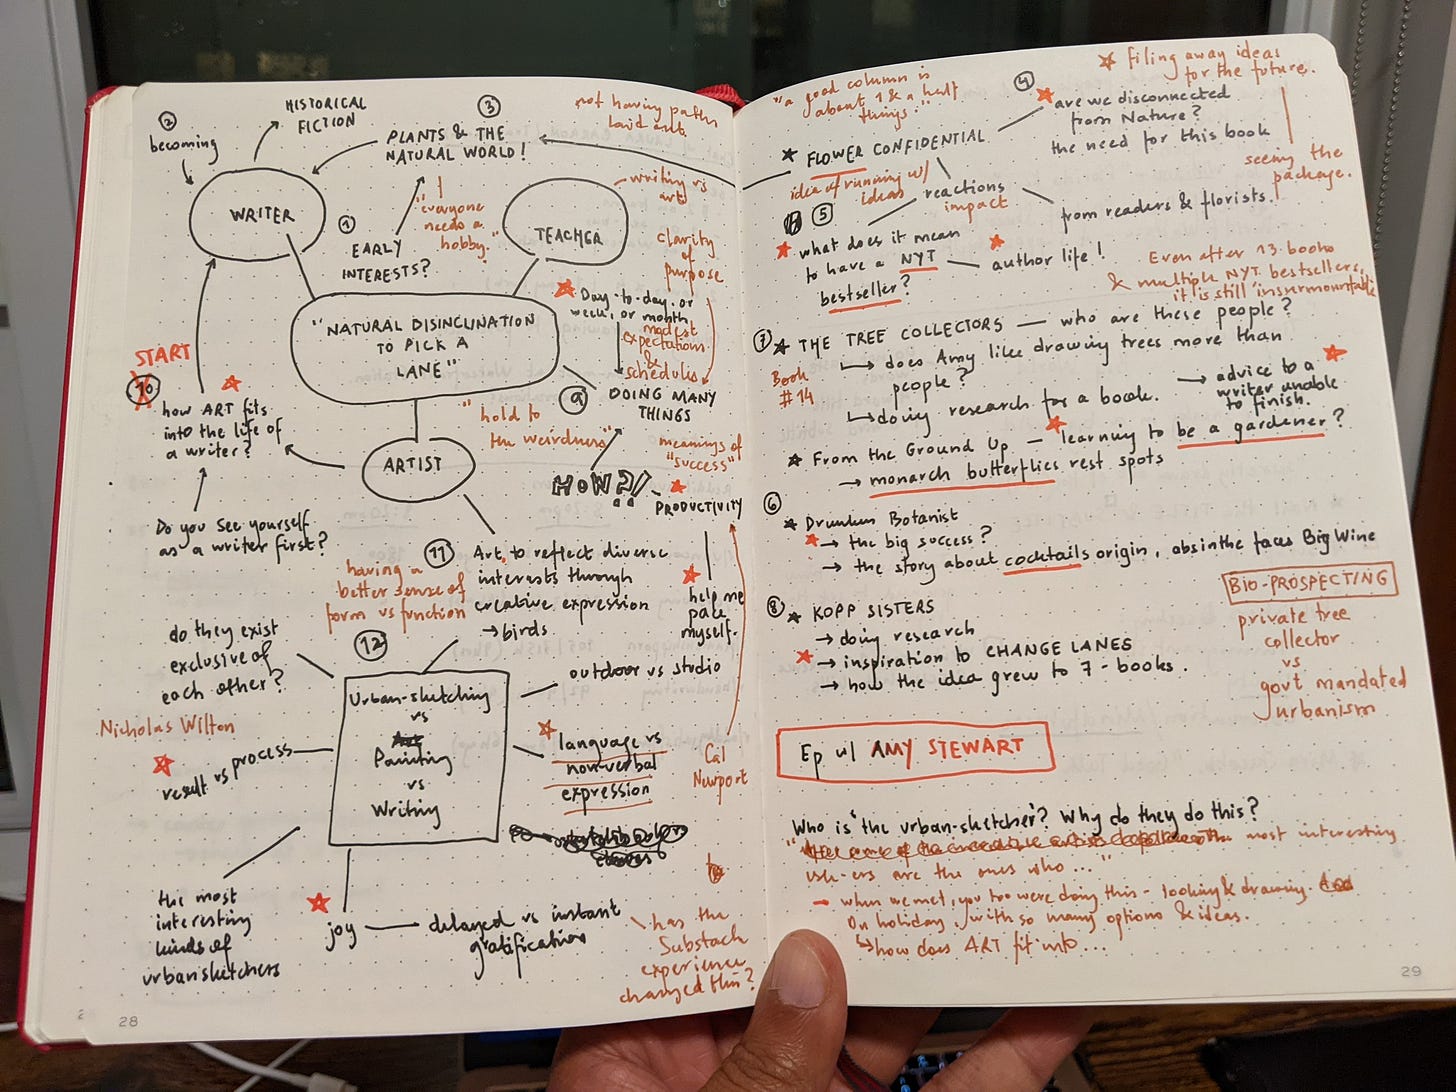 ②
becoming
HISTORICAL
FICTION
③
PLANTS & THE
NATURAL WORLD!
not having paths
laid out
WRITER
①
EARLY
INTERESTS?
"everyone
needs a
hobby."
TEACHER
writing vs
art
clarity
of
purpose
"NATURAL DISINCLINATION
TO PICK A
LANE"
Day-to-day, or
week, or month
modest
expectations
&
schedules
START
10
how ART fits
into the life of
a writer?
⑨
DOING MANY
THINGS
"hold to
the weirdness"
ARTIST
HOW?!
meanings of
"success"
PRODUCTIVITY
Do you see yourself
as a writer first?
help me
pace
myself.
having a
better sense of
form vs function
⑪
Art, to reflect diverse
interests through
creative expression
→ birds
do they exist
exclusive of
each other?
⑫
Urban-sketching
vs
Painting
vs
Writing
outdoor vs studio
Nicholas Wilton
result vs process
language vs
non-verbal
expression
Cal
Newport
the most
interesting
kinds of
urbansketchers
joy
delayed vs instant
gratification
has the
Substack
experience
changed this?
28
"a good column is
about 1 & a half
things."
④
filing away ideas
for the future.
FLOWER CONFIDENTIAL
are we disconnected
from Nature?
the need for this book
seeing the
package.
idea of running w/
ideas
reactions
impact
from readers & florists.
⑤
what does it mean
to have a NYT
bestseller?
author life!
Even after 13 books
& multiple NYT bestsellers,
it is still insurmountable
⑦
THE TREE COLLECTORS — who are these people?
Book
#14
↳ does Amy like drawing trees more than
people?
↳ doing research for a book.
→ advice to a
writer unable
to finish.
From the Ground Up — learning to be a gardener?
→ monarch butterflies rest spots
⑥
Drunken Botanist
→ the big success?
→ the story about cocktails origin, absinthe faces Big Wine
BIO-PROSPECTING
private tree
collector
vs
govt mandated
urbanism
⑧
KOPP SISTERS
→ doing research
→ inspiration to CHANGE LANES
→ how the idea grew to 7-books.
Ep w/ AMY STEWART
Who is the urban-sketcher? Why do they do this?
most interesting
usk-ers are the ones who ..."
→ when we met, you too were doing this - looking & drawing.
On holiday, with so many options & ideas.
↳ how does ART fit into ...
29